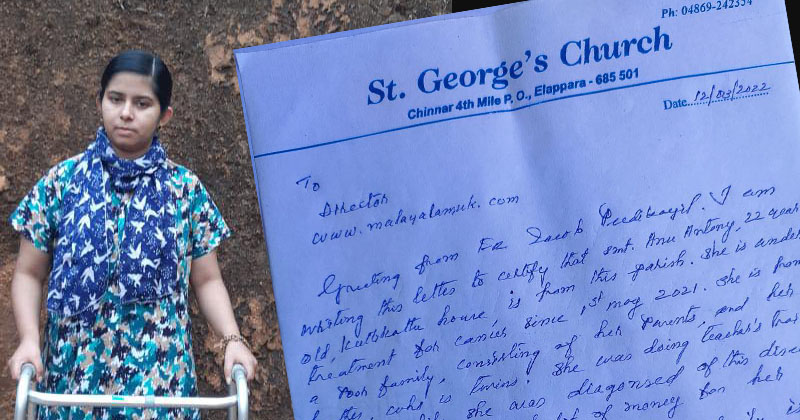 Ph: 04869-242354
St. George's Church
Chinnar 4th Mile P. O., Elappara - 685 501
Date 12/03/2022
To
Director
www.malayalamuk.com
Greeting from Fr. Jacob I am
writing this letter to certify that smt. Anu Antony, 22 years
old, house is from this parish. She is under
treatment for cancer since 1st may 2021. She is from
a poor family, consisting of her parents, and her
who is twins. She was doing teacher's
she was diagonsed of this
of money for her